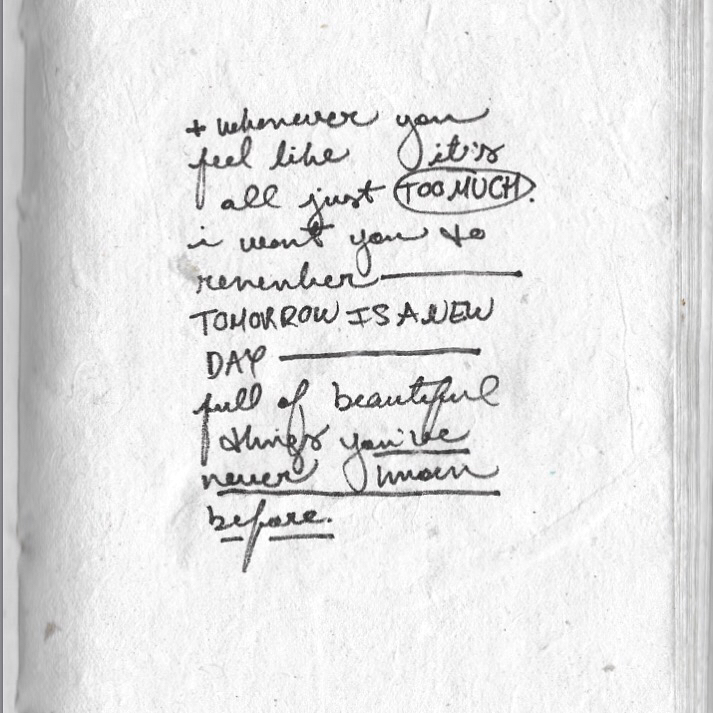 + whenever you
feel like it's
all just TOO MUCH.
i want you to
remember —
TOMORROW IS A NEW
DAY —
full of beautiful
things you've
never known
before.